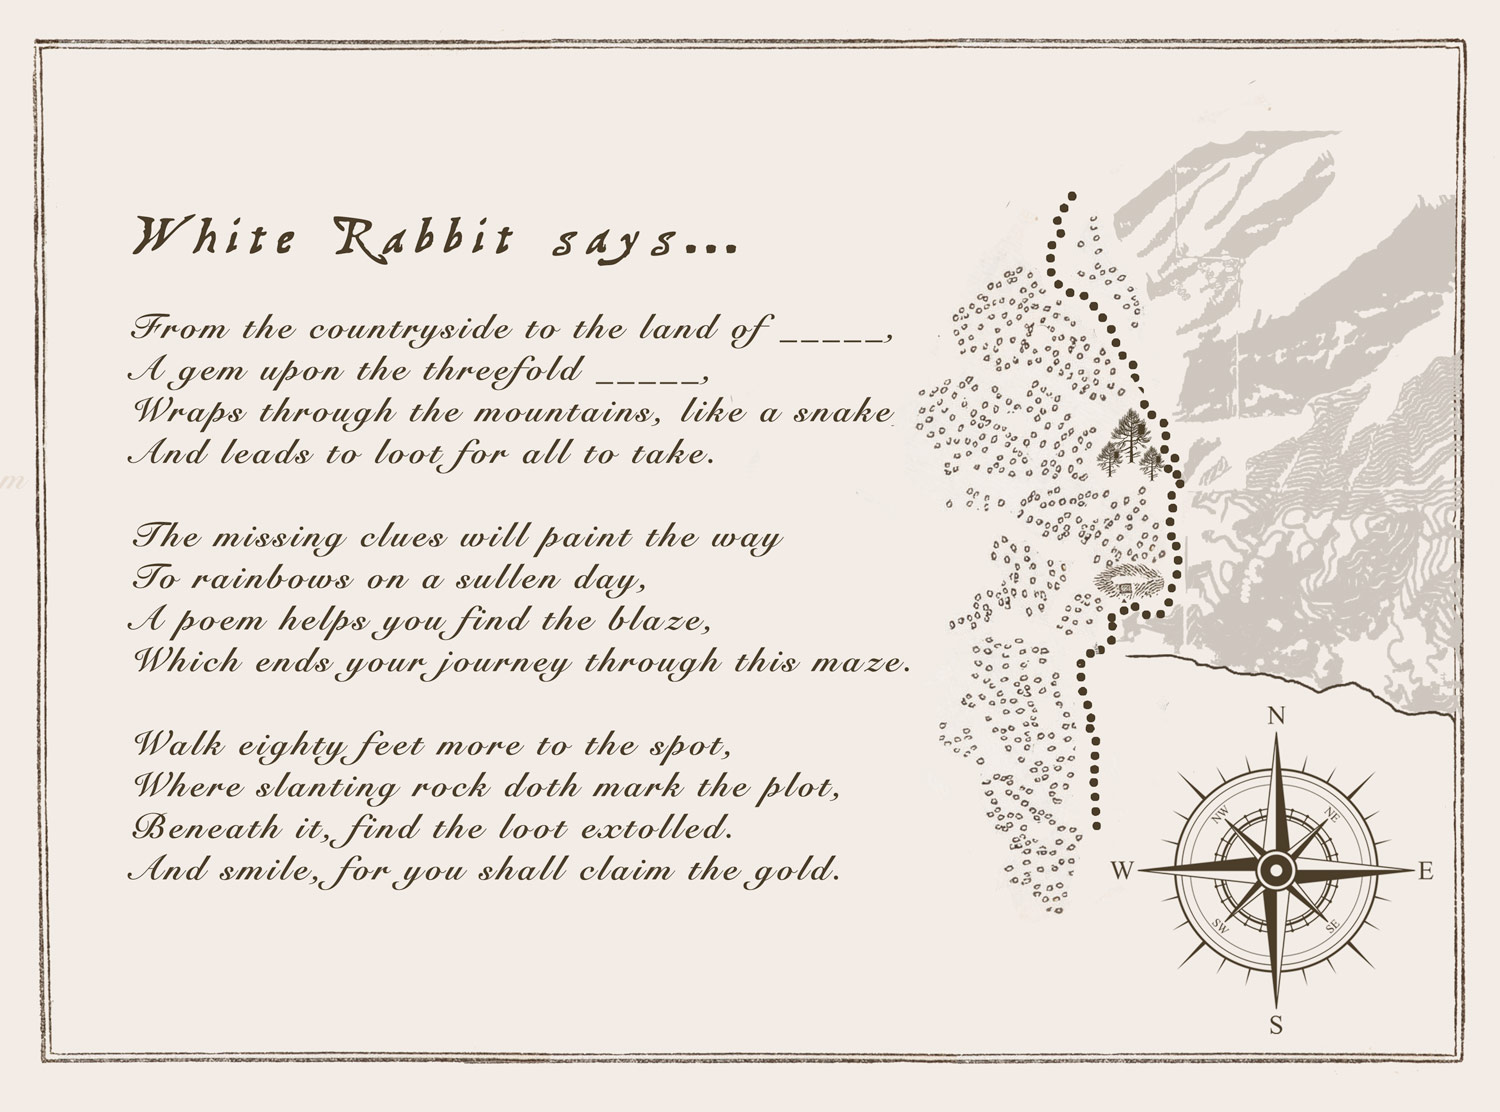 White Rabbit says...
From the countryside to the land of _____,
A gem upon the threefold _____,
Wraps through the mountains, like a snake
And leads to loot for all to take.
The missing clues will paint the way
To rainbows on a sullen day,
A poem helps you find the blaze,
Which ends your journey through this maze.
Walk eighty feet more to the spot,
Where slanting rock doth mark the plot,
Beneath it, find the loot extolled.
And smile, for you shall claim the gold.
N
NW NE
W E
SW SE
S
m